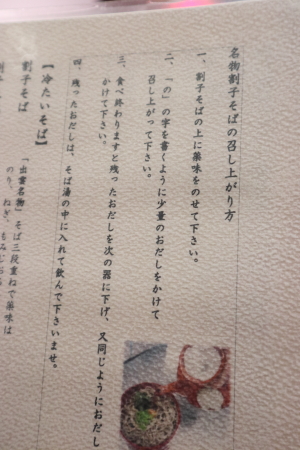 名物割子そばの召し上がり方
一、割子そばの上に薬味をのせて下さい。
二、「の」の字を書くように少量のおだしをかけて
召し上がって下さい。
三、食べ終わりますと残ったおだしを次の器に下げ、又同じようにおだし
かけて下さい。
四、残ったおだしは、そば湯の中に入れて飲んで下さいませ。
【冷たいそば】
割子そば
「出雲名物」そば三段重ねで薬味は
のり、ねぎ、もみじおろ